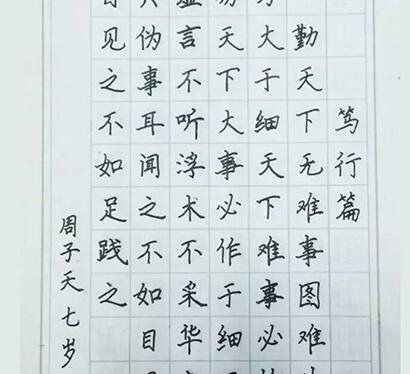 笃行篇
勤天下无难事图难
大于细天下难事必
易天下大事必作于细
虚言不听浮术不采华
伪事耳闻之不如目
见之不如足践之
周子天七岁